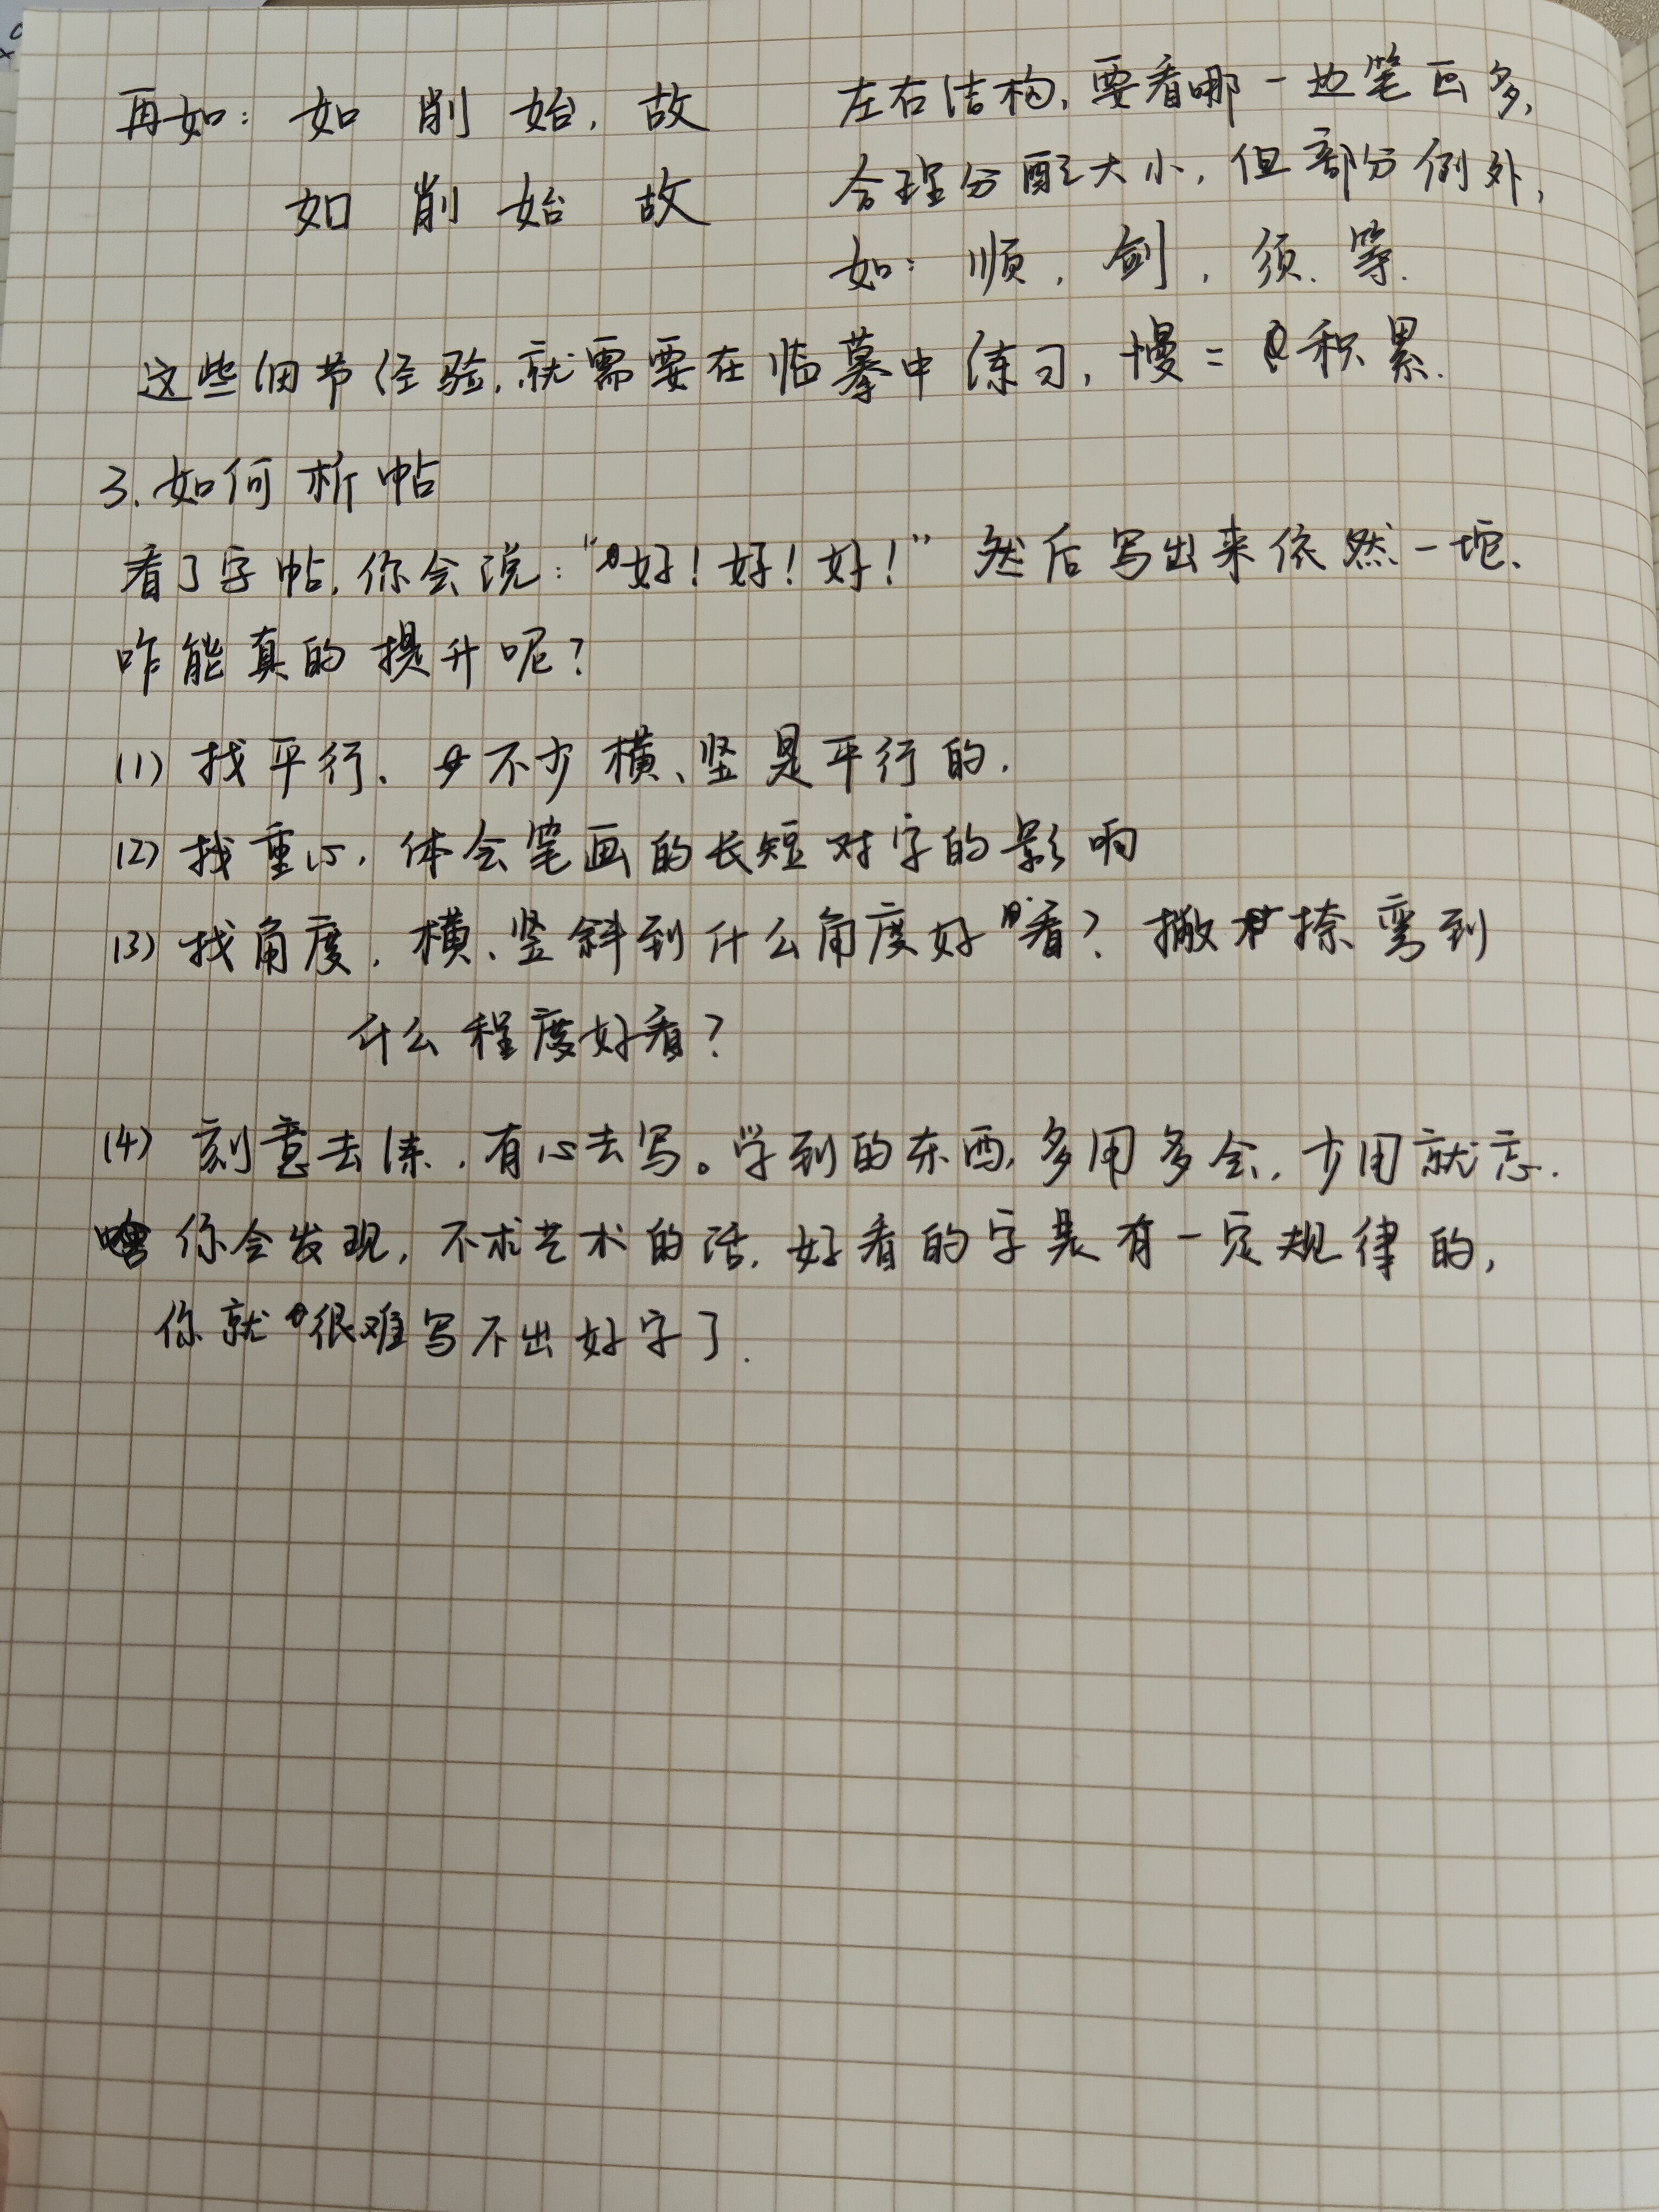 再如: 如 削 始, 故
如 削 始 故
左右结构, 要看哪一边笔画多,
合理分配大小, 但部分例外,
如: 顺, 剑, 须. 等.
这些细节经验, 就需要在临摹中练习, 慢=积累.
3. 如何析帖
看了字帖, 你会说: “好! 好! 好!” 然后写出来依然一坨.
咋能真的提升呢?
(1) 找平行. 不少横、竖是平行的.
(2) 找重心. 体会笔画的长短对字的影响
(3) 找角度. 横、竖斜到什么角度好看? 撇捺弯到
什么程度好看?
(4) 刻意去练, 有心去写。学到的东西, 多用多会, 少用就忘.
你会发现, 不求艺术的话, 好看的字是有一定规律的,
你就很难写不出好字了.